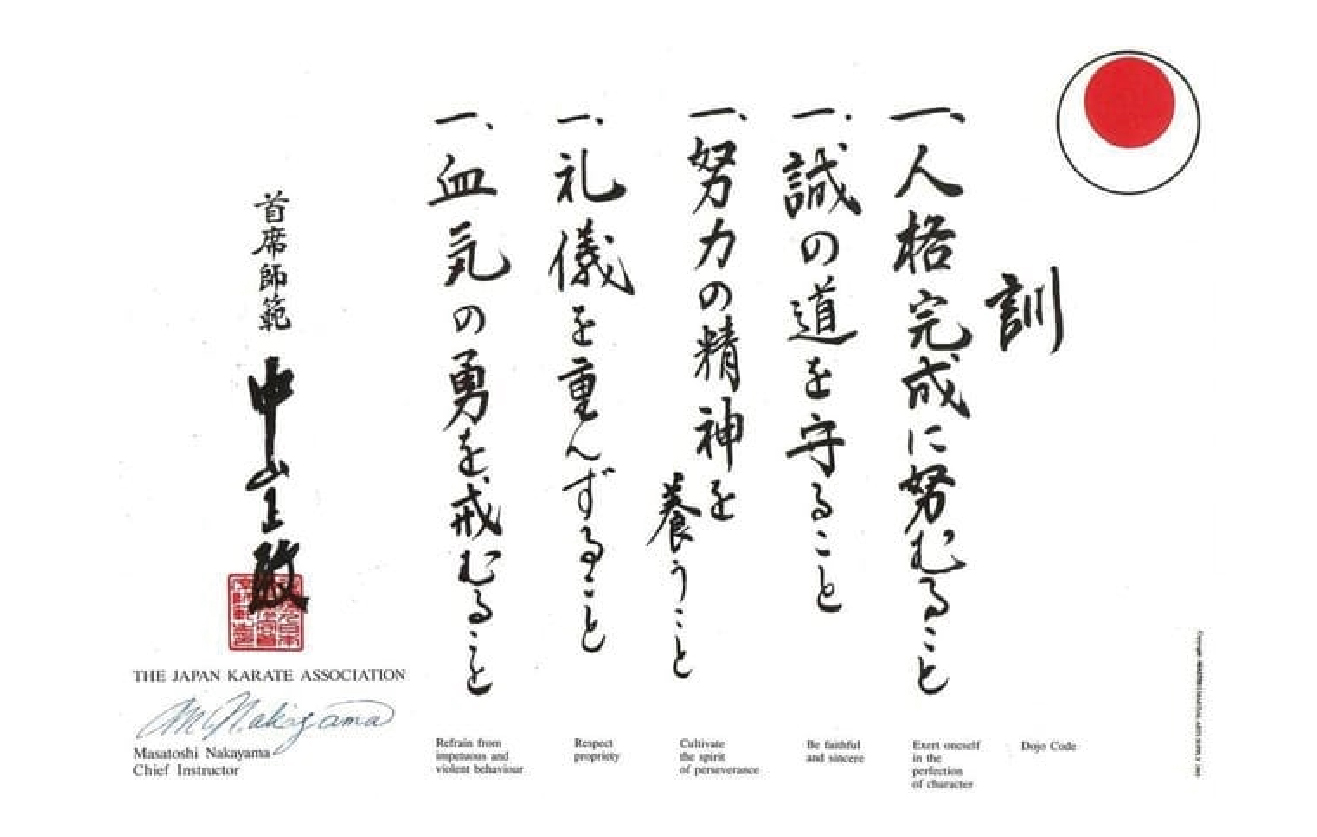 訓
一、人格完成に努むること
一、誠の道を守ること
一、努力の精神を
養うこと
一、礼儀を重んずること
一、血気の勇を戒むること
首席師範
中山正敏
THE JAPAN KARATE ASSOCIATION
M. Nakayama
Masatoshi Nakayama
Chief Instructor
Refrain from
impetuous and
violent behaviour
Respect
propriety
Cultivate
the spirit
of perseverance
Be faithful
and sincere
Exert oneself
in the
perfection
of character
Dojo Code